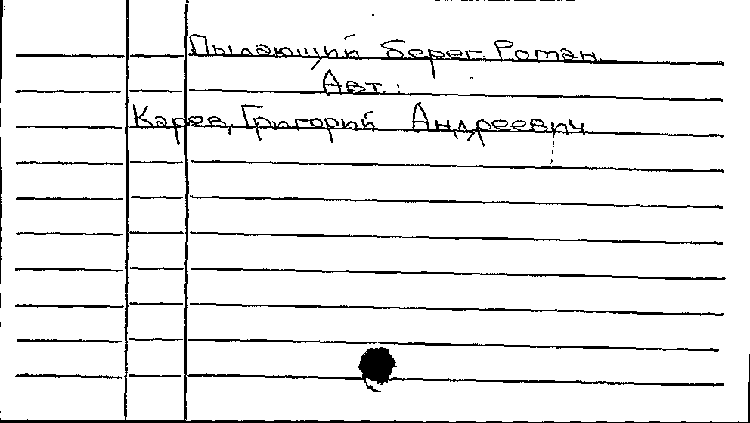 Пылающий берег. Роман.
Авт.:
Карев, Григорий Андреевич